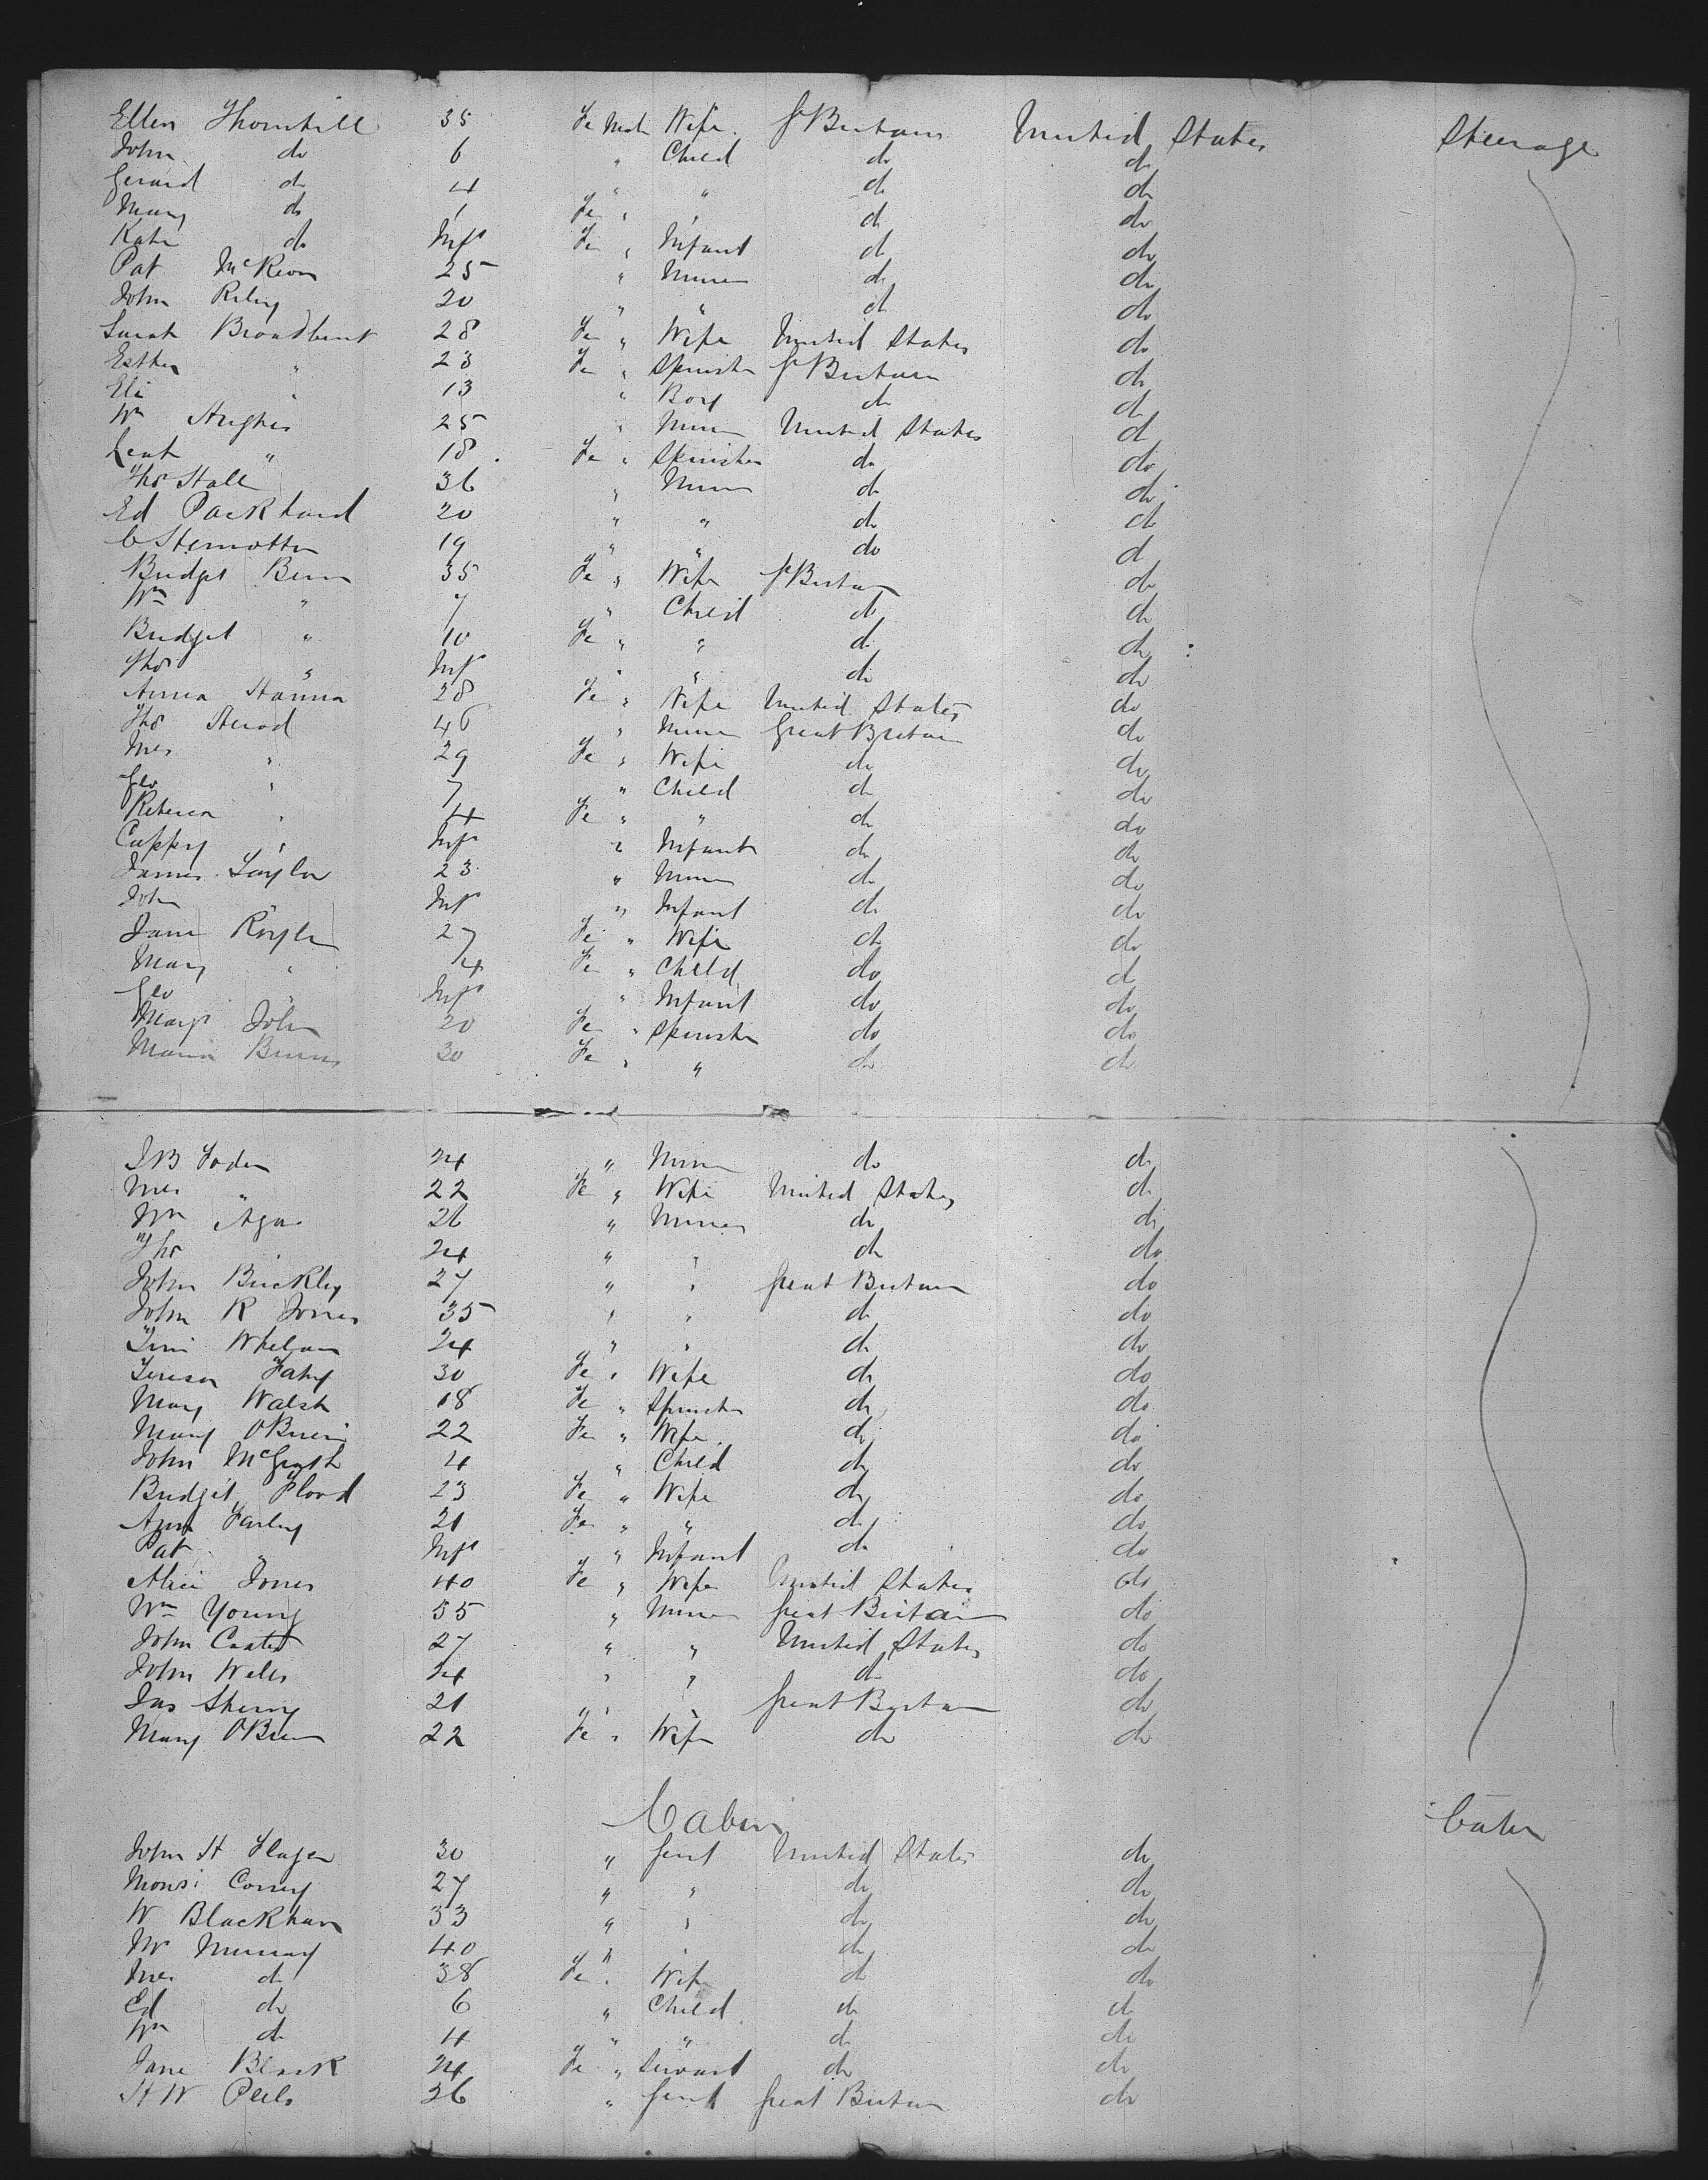 Ellen Thornhill 35 Fe Mal Wife Gt Britain United States Steerage
John do 6 " Child do do
Gerard do 4 " " do do
Mary do 1 Fe " " do do
Kate do Inft Fe " Infant do do
Pat McKeon 25 " Miner do do
John Riley 20 " " do do
Sarah Broadbent 28 Fe " Wife United States do
Esther " 23 Fe " Spinster Gt Britain do
Eli " 13 " Boy do do
Wm Hughes 25 " Miner United States do
" 18 Fe " Spinster do do
Thos Hall 36 " Miner do do
Ed Packhard 20 " " do do
C 19 " " do do
Bridget 35 Fe " Wife Gt Britain do
Wm " 7 " Child do do
Bridget " 10 Fe " " do do
Thos " Inft " " do do
Anna Hanna 28 Fe " Wife United States do
Thos Herod 46 " Miner Great Britain do
Mrs " 29 Fe " Wife do do
Geo " 7 " Child do do
Rebecca " 4 Fe " " do do
Cappy " Inft " Infant do do
James Taylor 23 " Miner do do
John Inft " Infant do do
Jane Royle 27 Fe " Wife do do
Mary " 4 Fe " Child do do
Geo Inft " Infant do do
Margt John 20 Fe " Spinster do do
Maria Burns 30 Fe " " do do
J B Foden 24 " Miner do do
Mrs " 22 Fe " Wife United States do
Wm Agar 26 " Miner do do
Thos " 24 " " do do
John Buckley 27 " " Great Britain do
John R Jones 35 " " do do
Tim Whelan 24 " " do do
Teresa Fahy 30 Fe " Wife do do
Mary Walsh 18 Fe " Spinster do do
Mary OBrien 22 Fe " Wife do do
John McGrath 4 " Child do do
Bridget Flood 23 Fe " Wife do do
Ann Farley 21 Fe " " do do
Pat " Inft " Infant do do
Alice Jones 40 Fe " Wife United States do
Wm Young 55 " Miner Great Britain do
John Coates 27 " " United States do
John Wells 24 " " do do
Jas Sherry 21 " " Great Britain do
Mary OBrien 22 Fe " Wife do do
Cabin Cabin
John H Hagen 30 " Gent United States do
Mons: 27 " " do do
W Blackham 33 " " do do
Mr Murray 40 " " do do
Mrs do 38 Fe " Wife do do
Ed do 6 " Child do do
Wm do 4 " " do do
Jane Black 24 Fe " Servant do do
H W Peels 26 " Gent Great Britain do